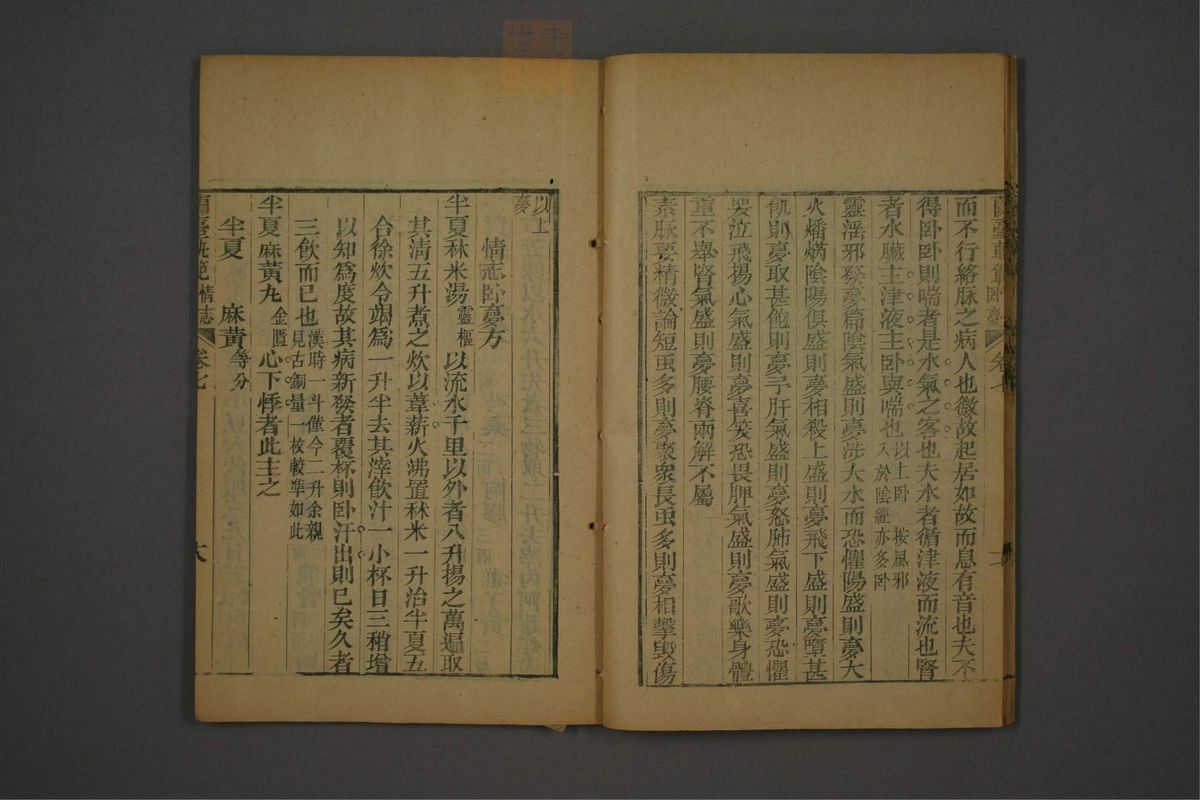 蘭臺軌範卧夢 卷七
而不行絡脉之病人也微故起居如故而息有音也夫不
得卧卧則喘者是水氣之客也夫水者循津液而流也腎
者水臟主津液主卧與喘也以上卧 按風邪入於陰經亦多卧
靈淫邪發夢篇陰氣盛則夢涉大水而恐懼陽盛則夢大
火燔焫陰陽俱盛則夢相殺上盛則夢飛下盛則夢墮甚
飢則夢取甚飽則夢予肝氣盛則夢怒肺氣盛則夢恐懼
哭泣飛揚心氣盛則夢喜笑恐畏脾氣盛則夢歌樂身體
重不舉腎氣盛則夢腰脊兩解不屬
素脉要精微論短虫多則夢聚衆長虫多則夢相擊毁傷
以上夢
情志卧夢方
半夏秫米湯靈樞 以流水千里以外者八升揚之萬遍取
其清五升煮之炊以葦薪火沸置秫米一升治半夏五
合徐炊令竭爲一升半去其滓飲汁一小杯日三稍增
以知爲度故其病新發者覆杯則卧汗出則已矣久者
三飲而已也漢時一斗僅今二升余親見古銅量一枚較準如此
半夏麻黃丸金匱 心下悸者此主之
半夏 麻黃等分
蘭臺軌範情志 卷七 六